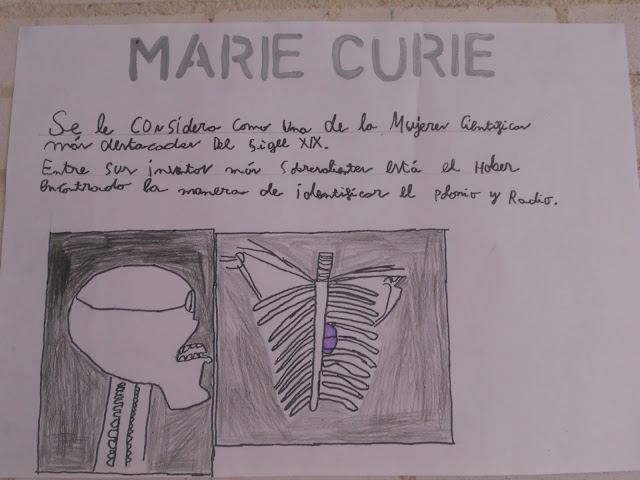 MARIE CURIE
Se le considera como una de la Mujeres Científicas
más destacadas Del Sigll XIX.
Entre sus inventos más sobresalientes está el Haber
Encontrado la manera de identificar el Polonio y Radio.